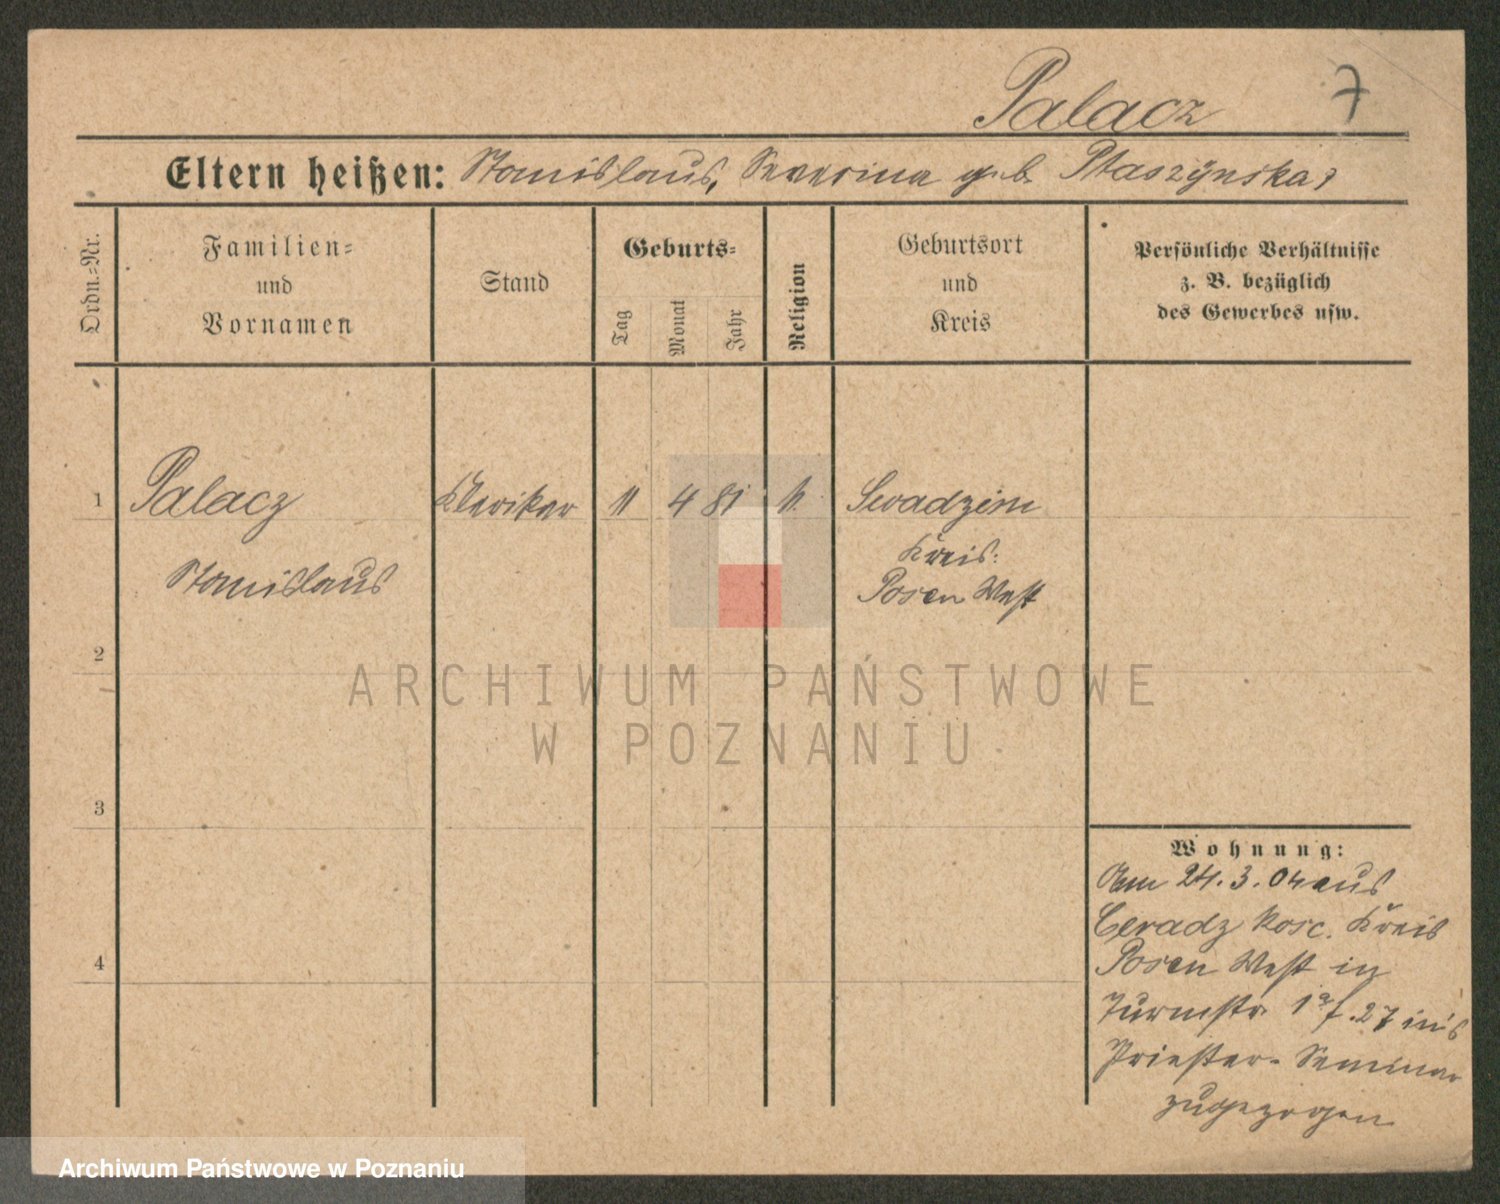 Palacz 7
Eltern heißen: Stanislaus, Severina geb. Ptaszynska
Ordn.=Nr.
Familien=
und
Vornamen
Stand
Geburts=
Tag
Monat
Jahr
Religion
Geburtsort
und
Kreis
Persönliche Verhältnisse
z. B. bezüglich
des Gewerbes usw.
1 Palacz Klerikar 11 4 81 k. Swadzim
Stanislaus
Kreis:
Posen West
2
3
4
Wohnung:
Am 24.3.04 aus
Ceradz kosc. Kreis
Posen West in
Turmstr. 27 in's
Priester-Seminar
zugezogen
ARCHIWUM PAŃSTWOWE
W POZNANIU
Archiwum Państwowe w Poznaniu